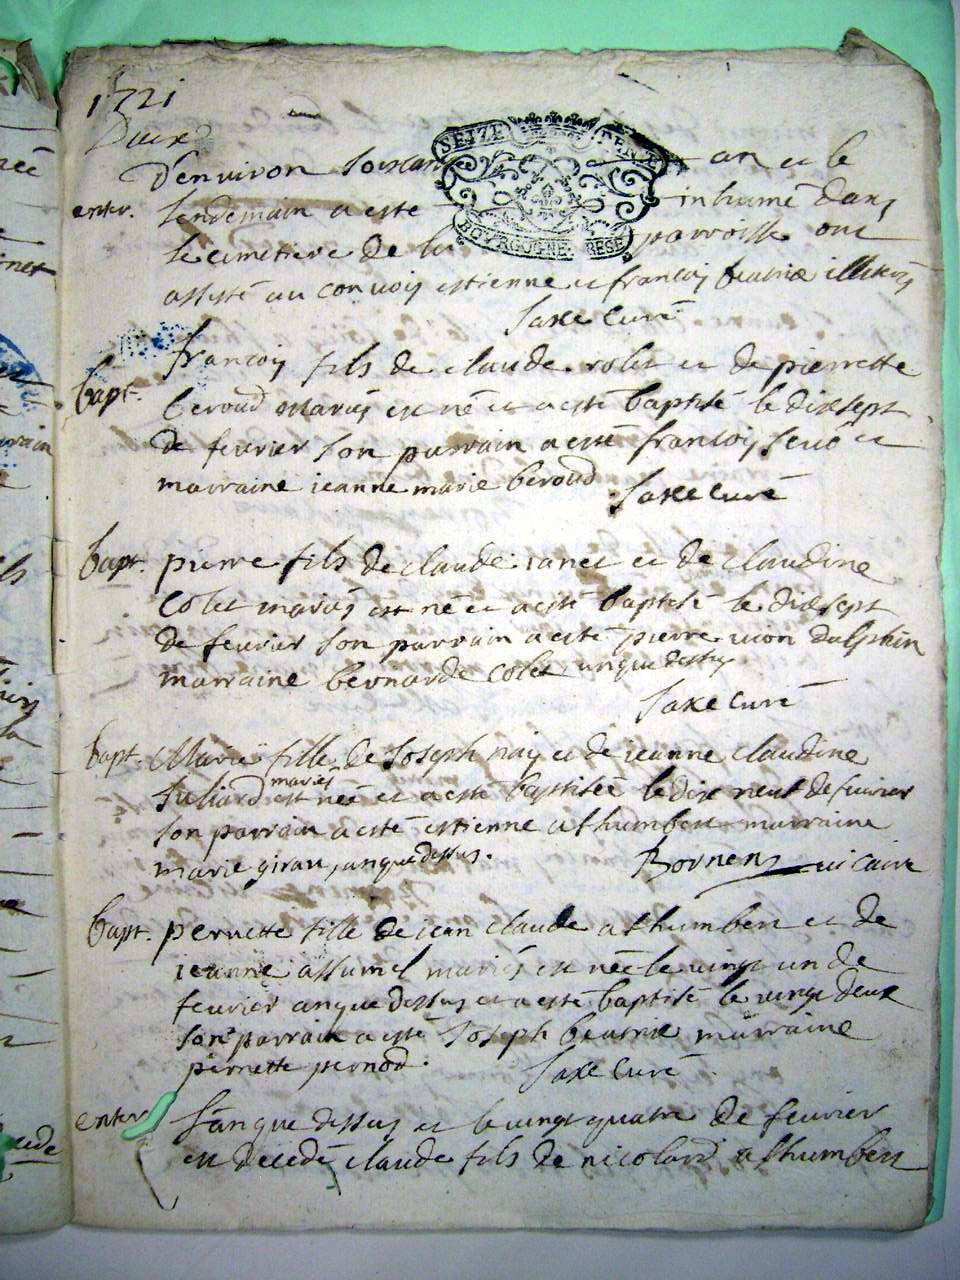 1721
SEIZE DEN
d'environ soixan an et le
enter. lendemain a este inhumé dans
BOVRGOGNE. BRESE
le cimetiere de la parroisse ont
assisté au convoy estienne et françois beatrix illiterés
Saxe Curé
bapt. françois fils de claude rolet et de pierrette
beroud mariés est né et a esté baptisé le dixsept
de fevrier son parrain a esté françois et
marraine jeanne marie beroud Saxe Curé
bapt. pierre fils de claude et de claudine
Colet mariés est né et a esté baptisé le dixsept
de fevrier son parrain a esté pierre vion dalphin
marraine bernarde Colet anque dessus
Saxe Curé
bapt. Marie fille de Joseph nay et de jeanne claudine
Juliard mariés est née et a esté baptisée le dix neuf de fevrier
son parrain a esté estienne althumbert marraine
marie girau, anque dessus. Bornens vicaire
bapt. pernette fille de jean claude althumbert et de
jeanne assumel mariés est née le vingt un de
fevrier anque dessus et a esté baptisé le vingt deux
son parrain a esté Joseph beatrix marraine
pernette pernod. Saxe Curé
enter l'anque dessus et le vingt quatre de fevrier
est decedé claude fils de nicolard althumbert
cede